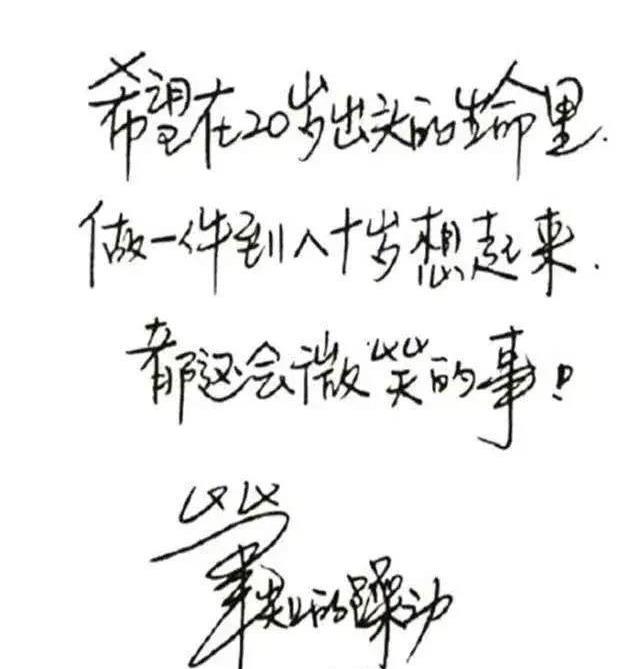 希望在20岁出头的生命里.
做一件到八十岁想起来.
都还会微笑的事!
笔尖的躁动